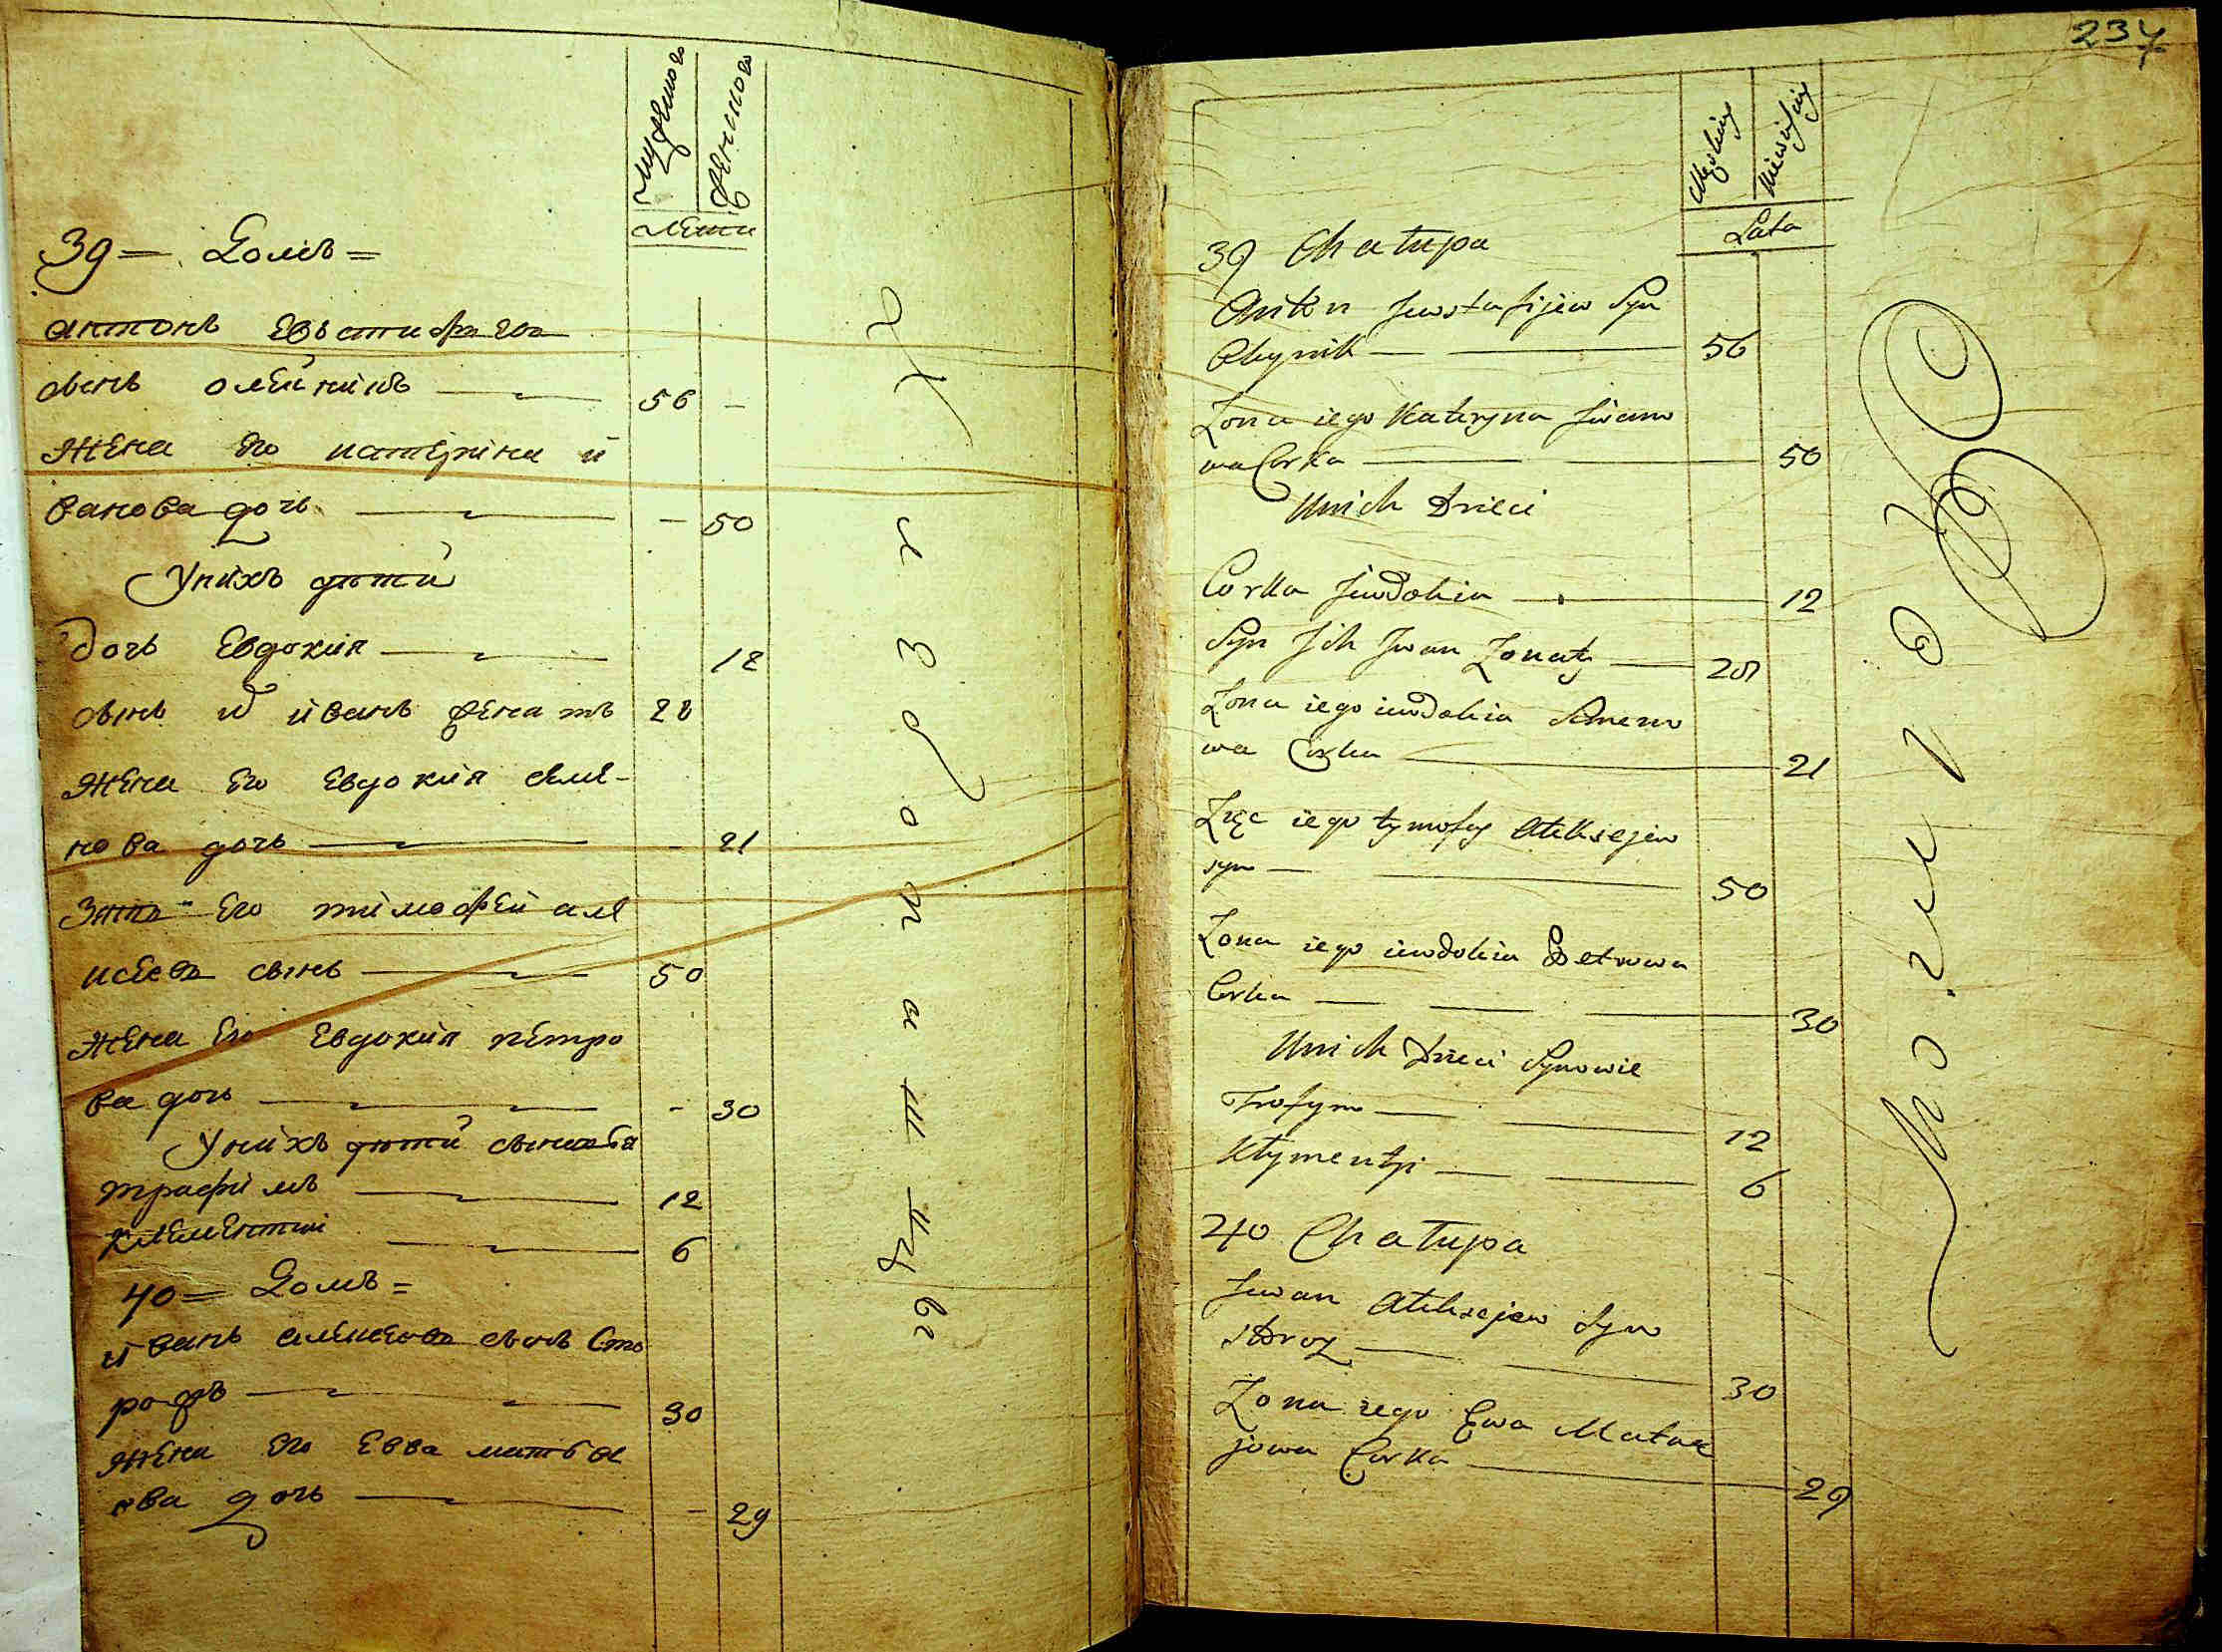 мужеского
женского
лети
39 = Домъ =
антонъ Евъстифѣевъ
сынъ олейникъ — 56 -
жена его катерина и
ванова дочь — - 50
Унихъ дѣти
дочь Евдокия — 12
сынъ и иванъ женатъ 28
жена его Евдокия семе-
нова дочь — - 21
зять его тимофей але
ксеевъ сынъ — 50
жена его Евдокия петро
ва дочь — - 30
Унихъ дѣти сыновья
трафимъ — 12
клементий — 6
40 = Домъ =
иванъ алексеевъ сынъ сто
рожъ — 30
жена его Евва матве
ева дочь — - 29
234
Męskiey
Niewieściey
Lata
39 Chałupa
Anton Jewstafijew Syn
Oleynik — 56
Zona iego Kateryna Jwano
wa Corka — 50
Unich Dzieci
Corka Jewdokia — 12
Syn Jch Jwan Zonaty — 28
Zona iego iewdokia Semeno
wa Corka — 21
Zięc iego tymofey Alekseiew
syn — 50
Zona iego iewdokia Petrowa
Corka — 30
Unich Dzieci Synowie
Trofym — 12
Kłymentyi — 6
40 Chałupa
Jwan Alekseiew Syn
storoz — 30
Zona iego Ewa Matwe
jowa Corka — 29